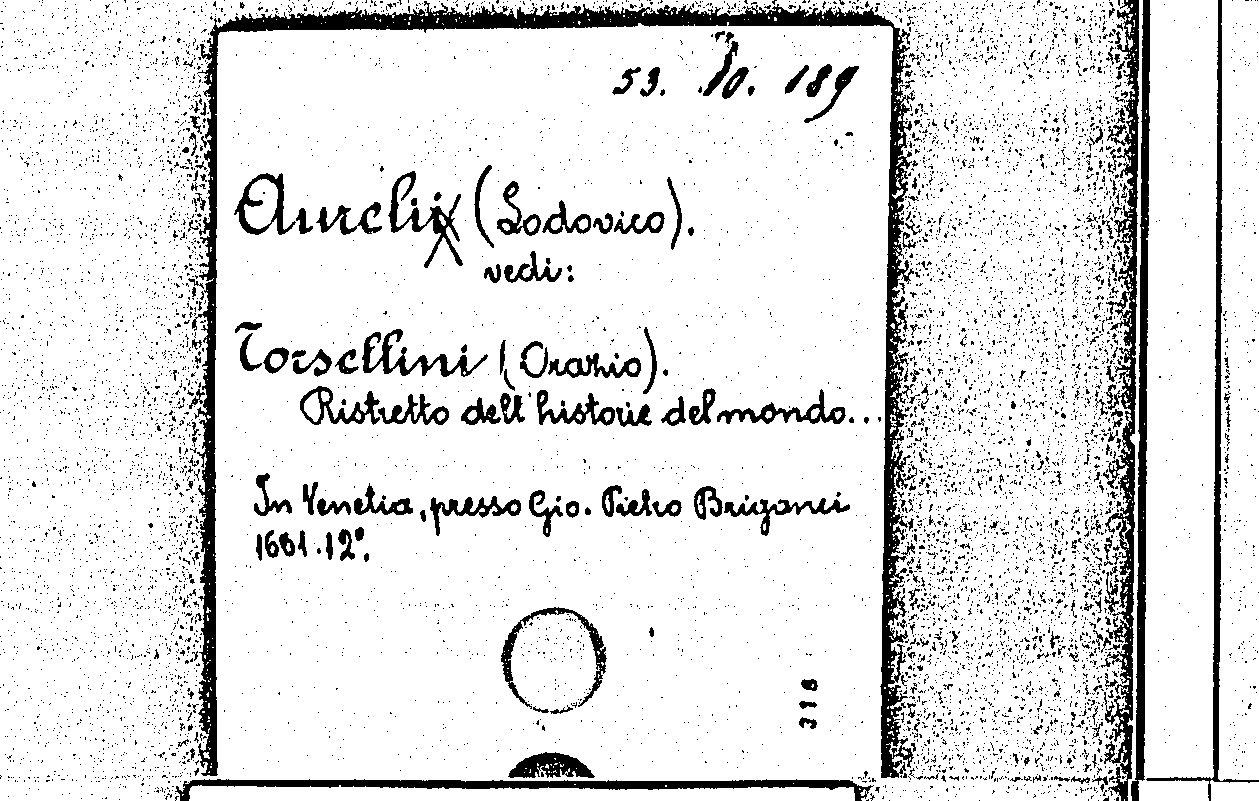 53. 10. 189
Aurelii (Lodovico).
vedi:
Torsellini (Orazio).
Ristretto dell'historie del mondo...
In Venetia, presso Gio. Pietro Briganci
1661.12º.
318